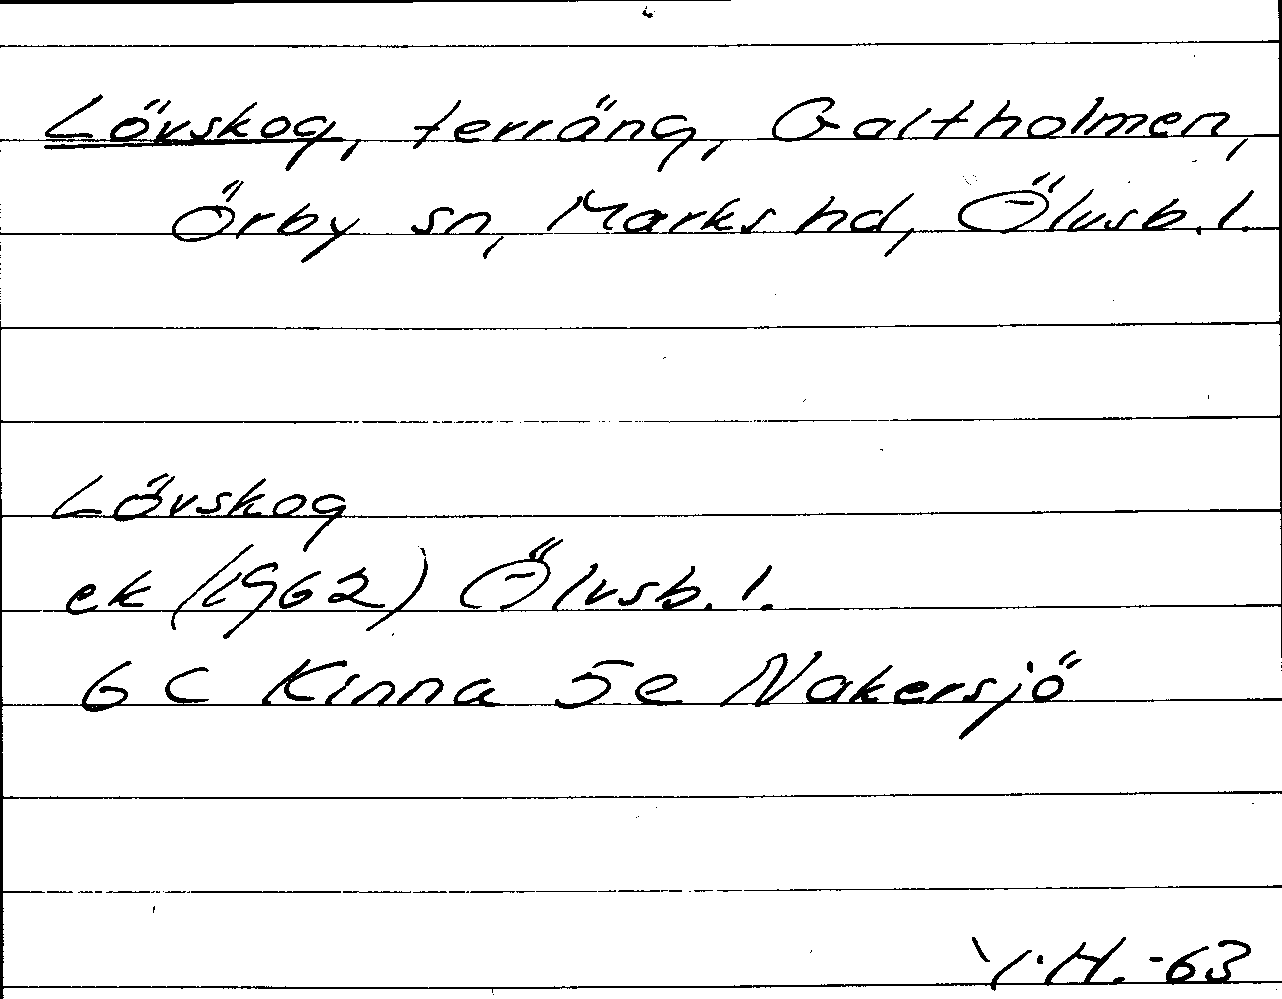 Lövskog, terräng, Galtholmen,
Örby sn, Marks hd, Älvsb. l.
Lövskog
ek (1962) Älvsb. l.
6 C Kinna 5e Nakersjö
Y.H. -63